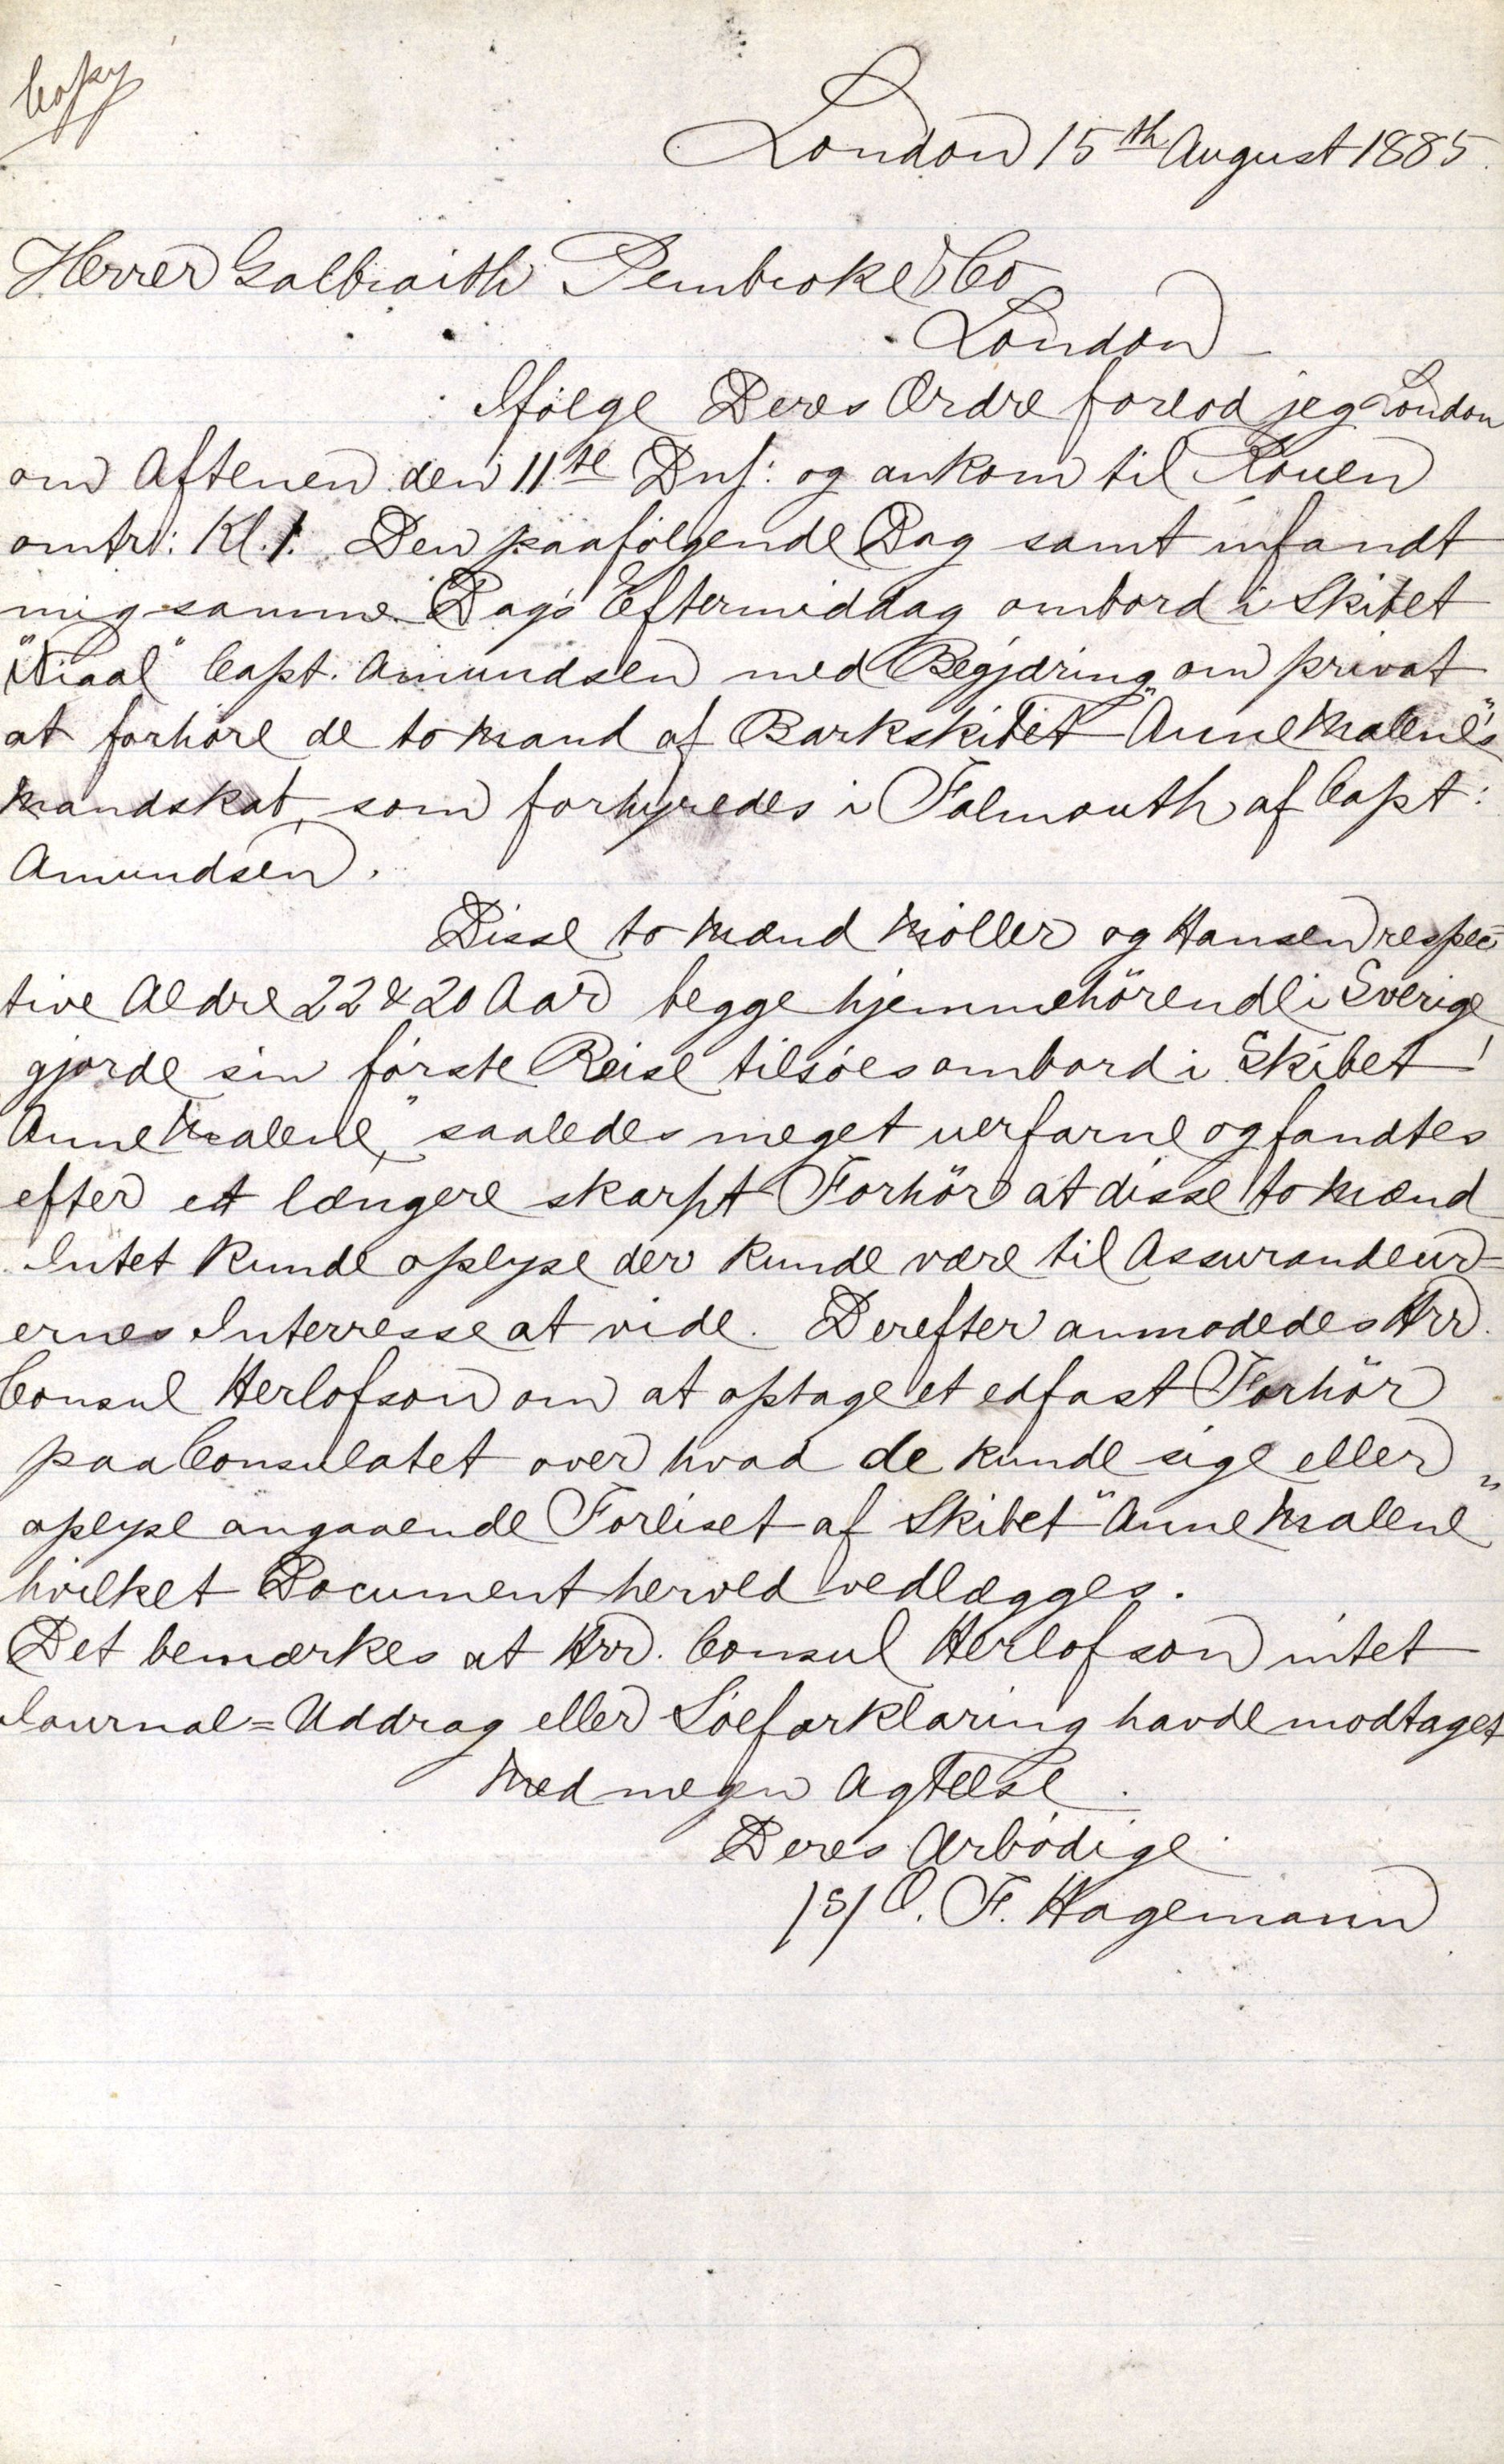 Copy
London 15th August 1885.
Herrer Galbraith Pembroke & Co
London
Ifölge Deres Ordre forlod jeg London
om Aftenen den 11te Ds: og ankom til Rouen
omtr: Kl. 1. Den paafölgende Dag samt infandt
mig samme Dags Eftermiddag ombord i Skibet
"Niaal" Capt. Amundsen med Begjæring om privat
at forhöre de to Mand af Barkskibet "Anne Malene's"
Mandskab, som forhyredes i Falmouth af Capt:
Amundsen.
Disse to Mænd Möller og Hansen respec=
tive Aldre 22 & 20 Aar begge hjemmehörende i Sverige
gjorde sin förste Reise tilsöes ombord i Skibet
Anne Malene" saaledes meget uerfarne og fandtes
efter et længere skarpt Forhör at disse to Mænd
Intet Kunde oplyse der Kunde være til Assurandeur=
ernes Interresse at vide. Derefter anmodedes Hrr.
Consul Herlofson om at optage et edfast Forhör
paa Consulatet over hvad de kunde sige eller
oplyse angaaende Forliset af Skibet "Anne Malene"
hvilket Document herved vedlægges.
Det bemærkes at Hrr. Consul Herlofson intet
Journal=Uddrag eller Söeforklaring havde modtaget
Med megen Agtelse.
Deres Ærbödige
/s/ O. F. Hagemann